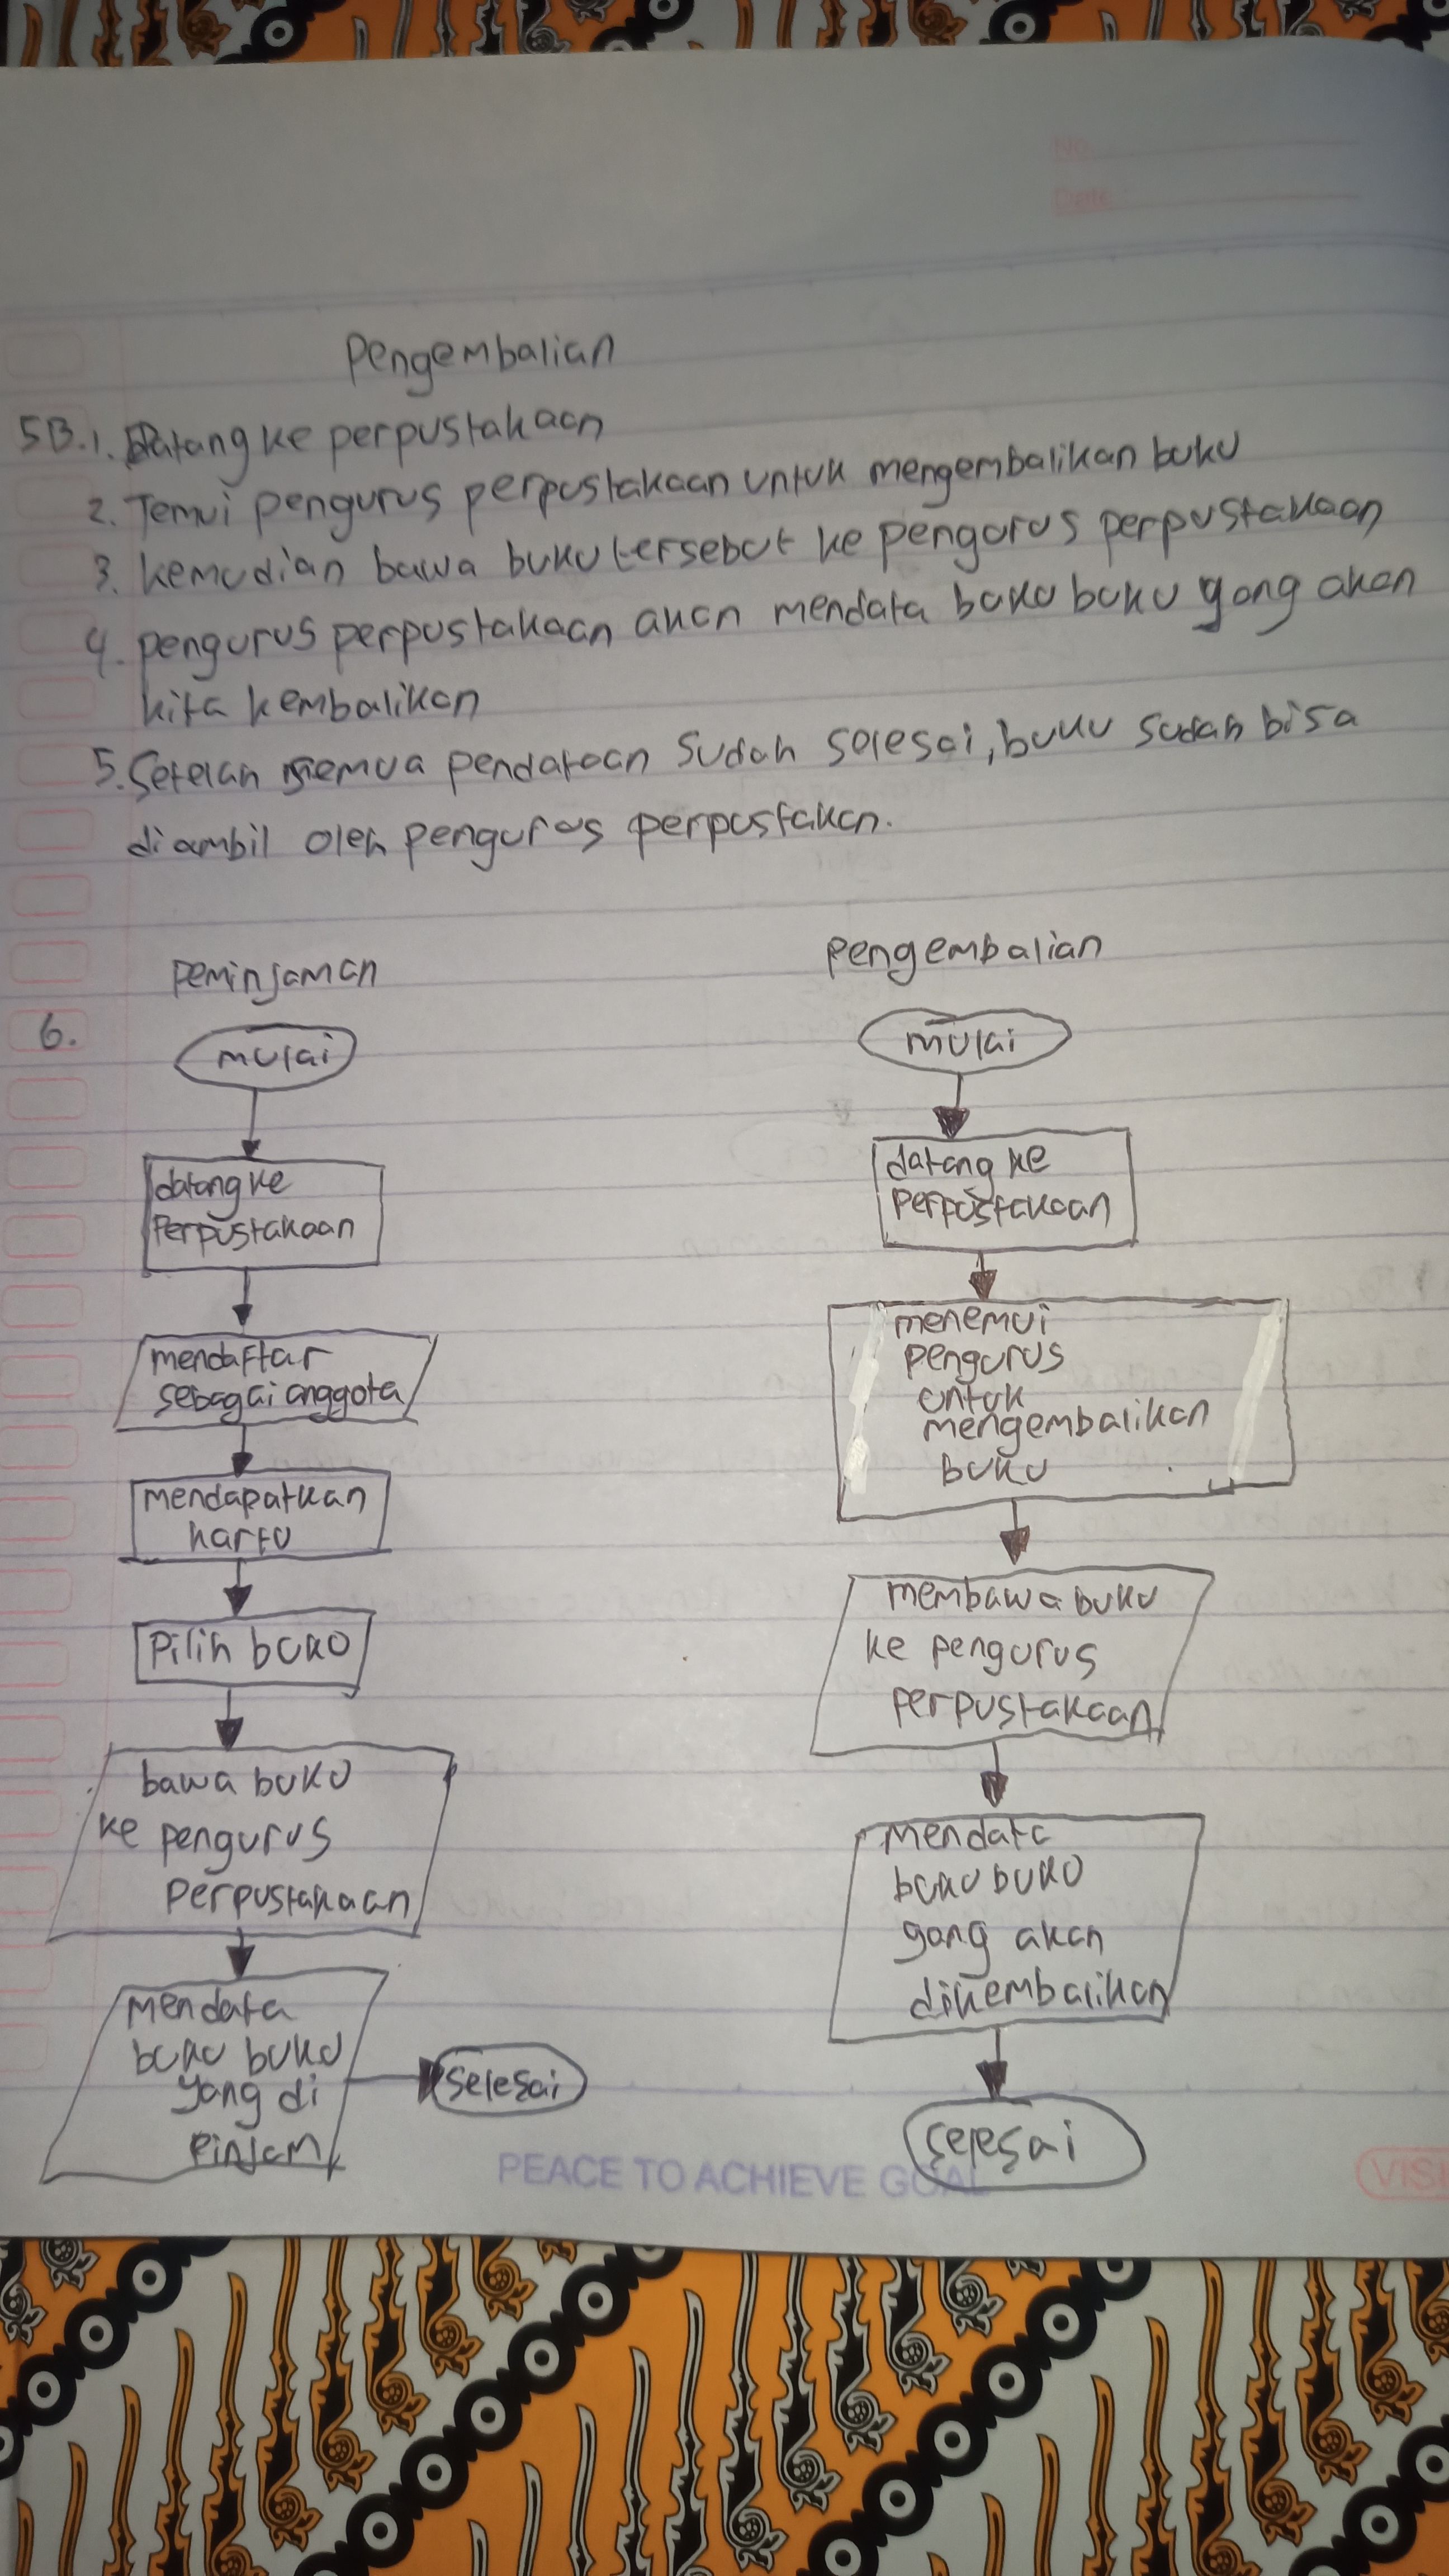 No
Date
Pengembalian
5B.1. Datang ke perpustakaan
2. Temui pengurus perpustakaan untuk mengembalikan buku
3. kemudian bawa buku tersebut ke pengurus perpustakaan
4. pengurus perpustakaan akan mendata buku buku yang akan
kita kembalikan
5. Setelah semua pendataan sudah selesai, buku sudah bisa
diambil oleh pengurus perpustakan.
peminjaman
6.
mulai
datang ke
perpustakaan
mendaftar
sebagai anggota
mendapatkan
kartu
Pilih buku
bawa buku
ke pengurus
perpustakaan
mendata
buku buku
yang di
pinjam
selesai
pengembalian
mulai
datang ke
perpustakaan
menemui
pengurus
untuk
mengembalikan
buku
membawa buku
ke pengurus
perpustakaan
mendata
buku buku
yang akan
dikembalikan
selesai
PEACE TO ACHIEVE GOAL